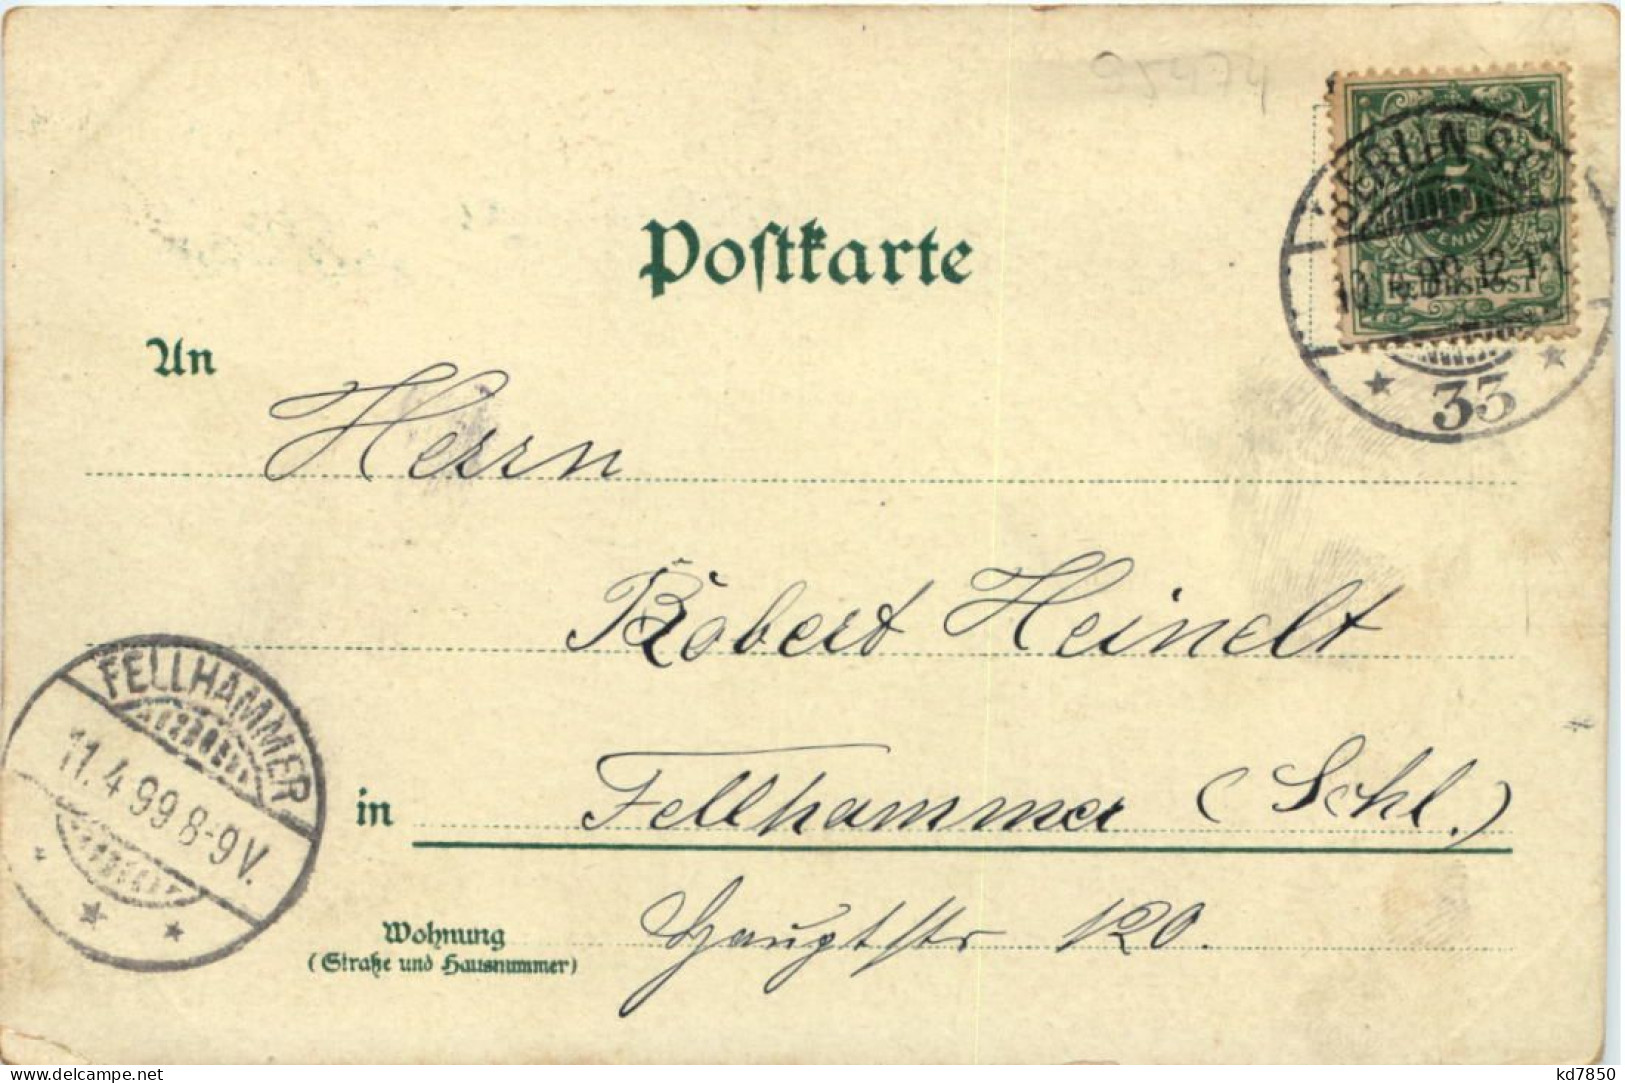 95474
Postkarte
BERLIN S.W.
5
PFENNIG
REICHSPOST
10.4.99.12-1
33
An Herrn
Robert Heinelt
FELLHAMMER
11.4.99 8-9V.
in Fellhammer (Schl.)
Wohnung
(Straße und Hausnummer)
Hauptstr 120.
delcampe.net
kd7850